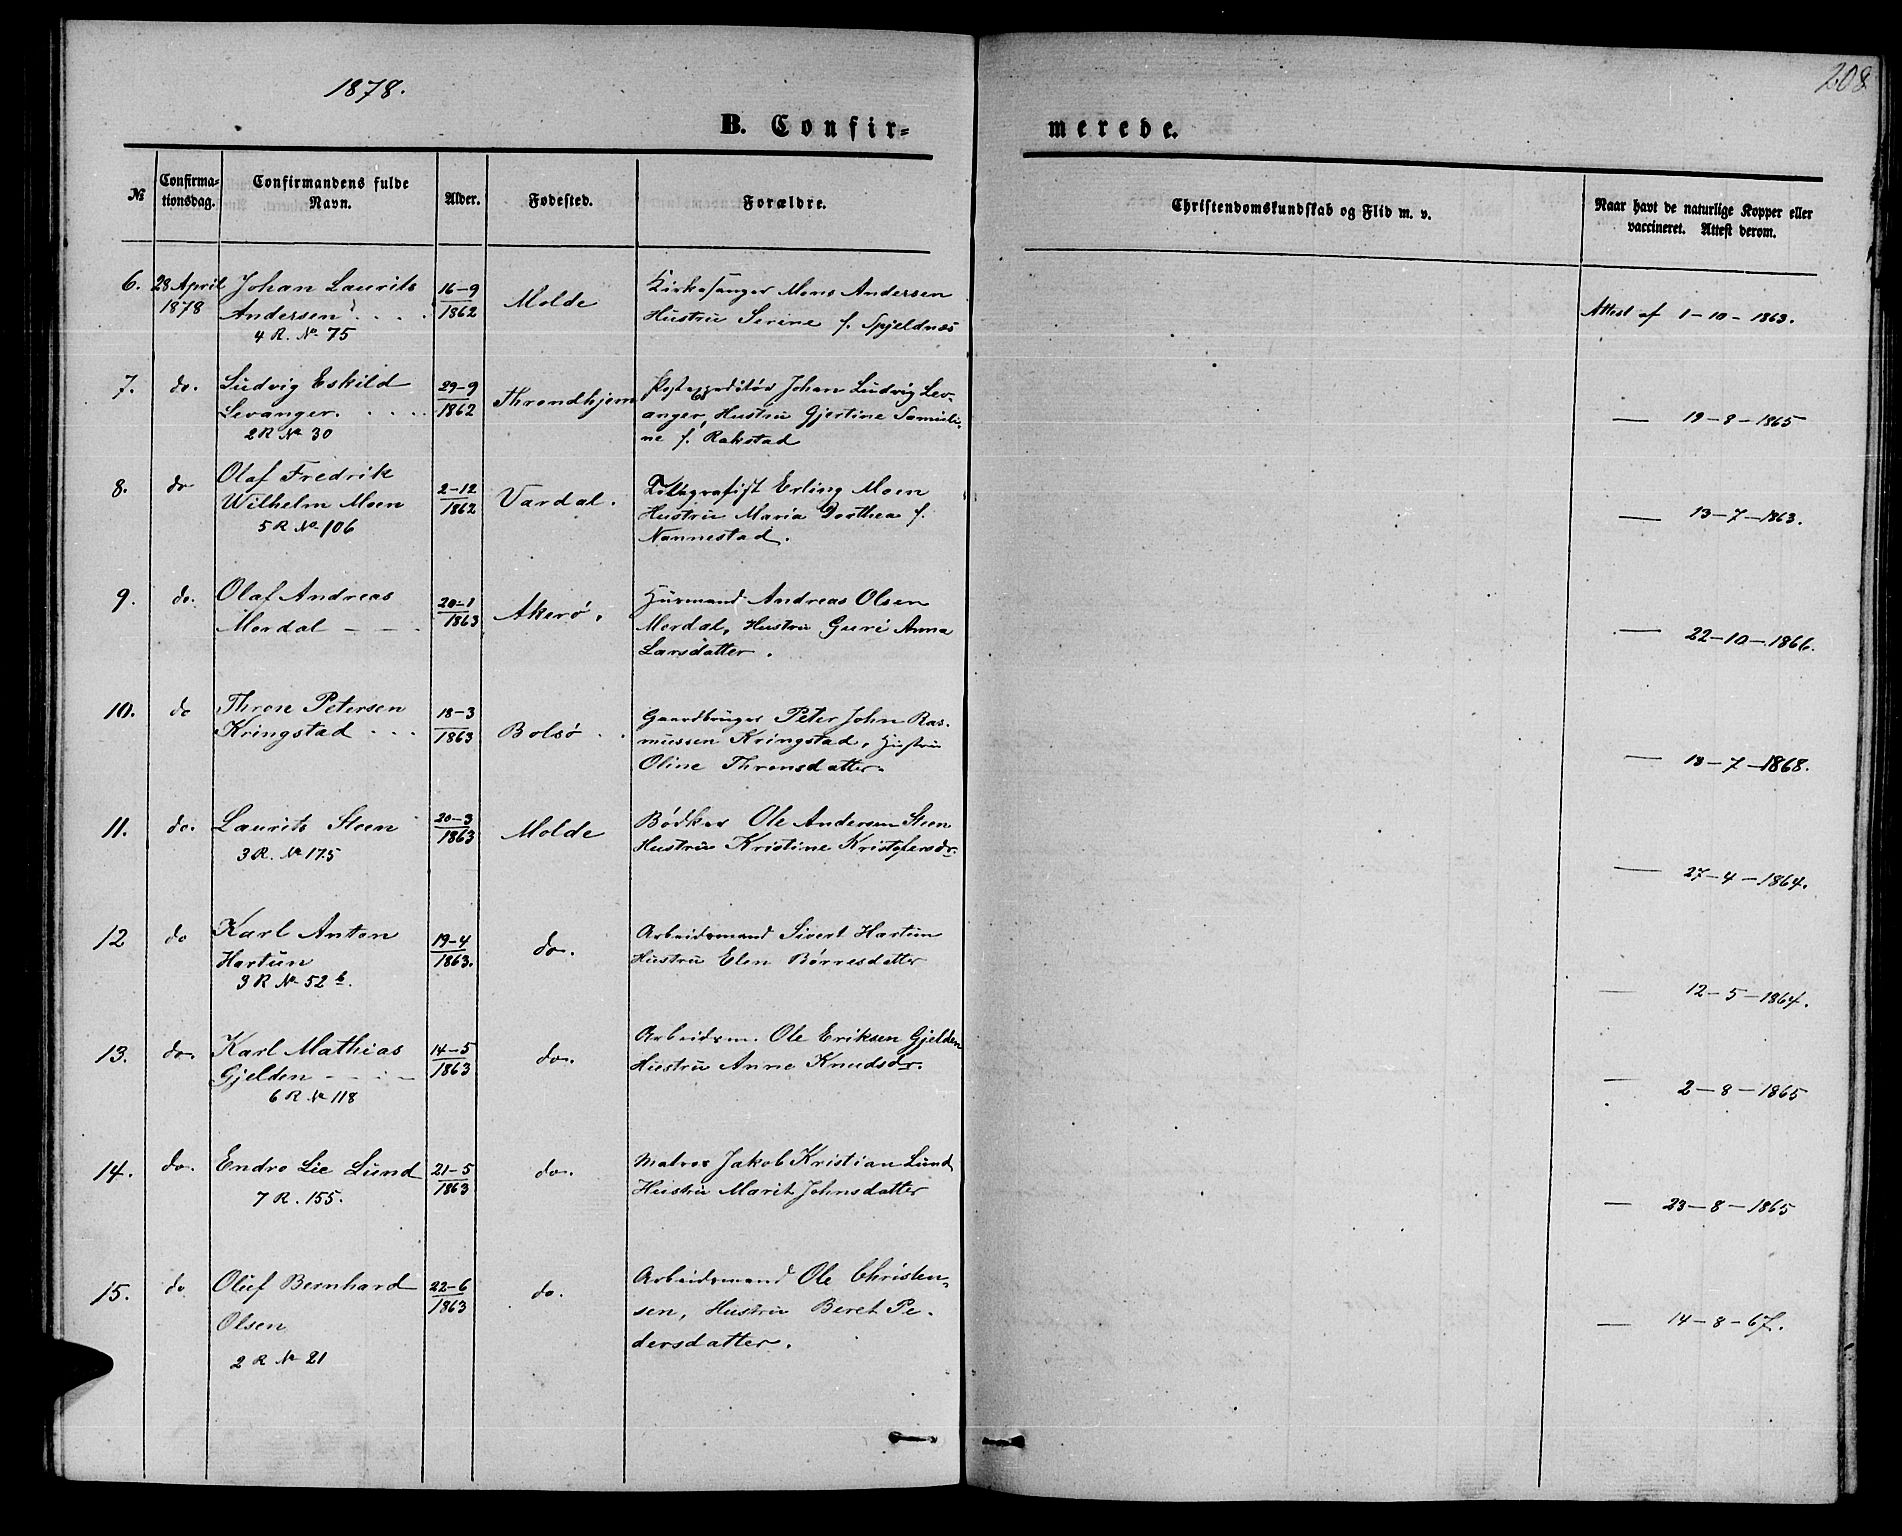 1878.
208
B. Confir=
merede.
№
Confirma-
tionsdag.
Confirmandens fulde
Navn.
Alder.
Fødested.
Forældre.
Christendomskundskab og Flid m. v.
Naar havt de naturlige Kopper eller
vaccineret. Attest derom.
6. 28 April
1878
Johan Laurits
Andersen . . . .
4 R. No 75
16-9
1862
Molde
Kirkesanger Mons Andersen
Hustru Serine f. Spjeldnæs
Attest af 1-10-1863.
7. do.
Ludvig Eskild
Levanger. . . . .
2 R No 30
29-9
1862
Throndhjem
Postexpeditør Johan Ludvig Lev-
anger, Hustru Gjertine Samueli-
ne f. Rakstad
— 19-8-1865
8. do
Olaf Fredrik
Wilhelm Moen
5 R No 106
2-12
1862
Vardal.
Telegrafist Erling Moen
Hustru Maria Dorthea f.
Nannestad.
— 13-7-1863.
9. do.
Olaf Andreas
Mordal - - -
20-1
1863
Akerø.
Husmand Andreas Olsen
Mordal, Hustru Guri Anna
Larsdatter.
— 22-10-1866.
10. do
Thron Petersen
Kringstad . . .
18-3
1863
Bolsø . .
Gaardbruger Peter John Ras-
mussen Kringstad, Hustru
Oline Thronsdatter.
— 13-7-1868.
11. do.
Laurits Steen
3 R. No 175
20-3
1863
Molde
Bødker Ole Andersen Steen
Hustru Kristine Kristofersdr.
— 27-4-1864.
12 do
Karl Anton
Hartun
3 R No 52 b.
19-4
1863.
do.
Arbeidsmand Sivert Hartun
Hustru Elen Børresdatter
— 12-5-1864.
13. do.
Karl Mathias
Gjelden - - - -
6 R No 118
14-5
1863
do.
Arbeidsm. Ole Eriksen Gjelden
Hustru Anne Knudsdr.
— 2-8-1865
14. do.
Endre Lie Lund
7 R. 155.
21-5
1863
do.
Matros Jakob Kristian Lund
Hustru Marit Johnsdatter
— 23-8-1865
15. do
Oluf Bernhard
Olsen
2 R No 21
22-6
1863
do.
Arbeidsmand Ole Christen-
sen, Hustru Beret Pe-
dersdatter.
— 14-8-67.